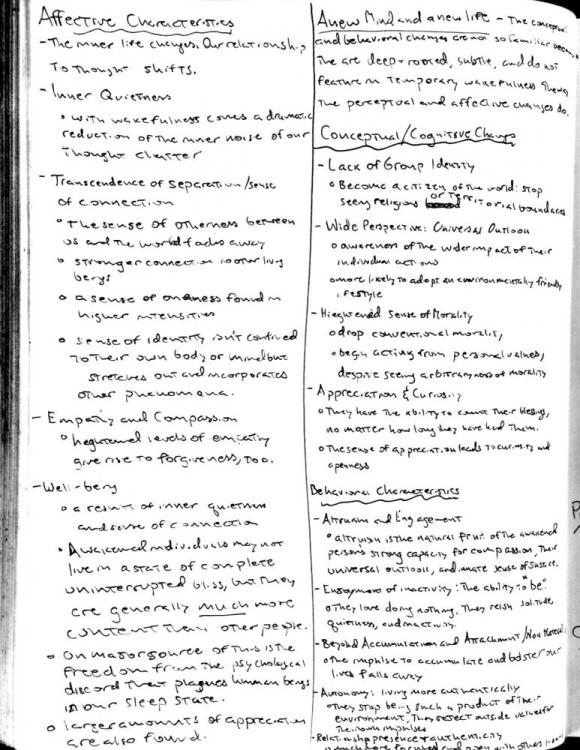 Affective Characteristics
- The inner life changes. Our relationship
To Thought shifts.
- Inner Quietness
• with wakefulness comes a dramatic
reduction of the inner noise of our
Thought chatter
- Transcendence of Separation/sense
of connection
• the sense of otherness between
us and the world fades away
• stronger connection to other living
beings
• a sense of oneness found in
higher intensities
• sense of identity isn't confined
to their own body or mind but
stretches out and incorporates
other phenomena.
- Empathy and Compassion
• heightened levels of empathy
give rise to forgiveness, too.
- Well-being
• a result of inner quietness
and sense of connection
• Awakened individuals may not
live in a state of complete
uninterrupted bliss, but they
are generally much more
content than other people.
• On major source of this is the
freedom from the psychological
discord that plagues human beings
in our sleep state.
• larger amounts of appreciation
are also found.
A new Mind and a new life - The conceptual
and behavioral changes are not so familiar
The are deep-rooted, subtle, and do not
feature in Temporary wakefulness
the perceptual and affective changes do.
Conceptual/Cognitive Changes
- Lack of Group Identity
• Become a citizen of the world: stop
seeing religious or territorial boundaries
- Wide Perspective: Universal Outlook
• awareness of the wider impact of their
individual actions
• more likely to adopt an environmentally friendly
lifestyle
- Hieghtened Sense of Morality
• drop conventional morality,
• begin acting from personal values,
despite seeing arbitraryness of morality
- Appreciation & Curiosity
• They have the ability to count their blessings,
no matter how long they have had them.
• The sense of appreciation leads to curiosity and
openness
Behavioral Characteristics
- Altruism and Engagement
• altruism is the natural fruit of the awakened
persons strong capacity for compassion, their
universal outlook, and innate sense of justice.
- Enjoyment of inactivity: The ability to "be"
• They love doing nothing. They relish solitude,
quietness, and inactivity.
- Beyond Accumulation and Attachment/Non Material
• The impulse to accumulate and bolster our
lives falls away
- Autonomy: living more authentically
• they stop being such a product of their
environment. They reject outside values for
their own impulses
- Relationship presence + authenticity